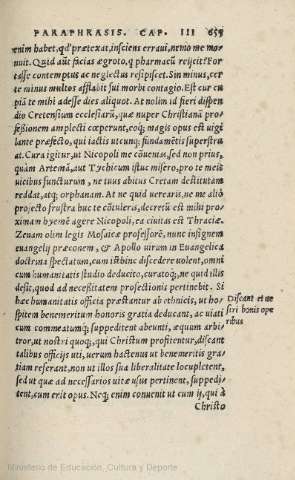 PARAPHRASIS. CAP. III 659
enim habet, qd' prætexat, insciens erraui, nemo me mo
nuit. Quid aūt facias ægroto, q pharmacū reijcit? For
tasse contemptus ac neglectus resipiscet. Sin minus, cer
te minus multos afflabit sui morbi contagio. Est cur cu
piā te mihi adesse dies aliquot. At nolim id fieri dispen
dio Cretensium ecclesiarū, quæ nuper Christianā pro-
fessionem amplecti cœperunt, eoq; magis opus est uigi
lante præfecto, qui iactis utcunq; fundamētis superstru
at. Cura igitur, ut Nicopoli me cōuenias, sed non prius,
quàm Artemā, aut Tychicum istuc misero, pro te meis
uicibus functurum, ne tuus abitus Cretam destitutam
reddat, atq; orphanam. At ne quid uerearis, ne me aliò
profecto frustra huc te cōtuleris, decretū est mihi pro-
ximam hyemē agere Nicopoli, ea ciuitas est Thraciæ.
Zenam olim legis Mosaicæ professorē, nunc insignem
euangelij præconem, & Apollo uirum in Euangelica
doctrina spectatum, cum isthinc discedere uolent, omni
cum humanitatis studio deducito, curatoq;, ne quid illis
desit, quod ad necessitatem profectionis pertinebit. Si
hæc humanitatis officia præstantur ab ethnicis, ut ho-
spitem benemeritum honoris gratia deducant, ac uiati
cum commeatumq; suppeditent abeunti, æquum arbi-
tror, ut nostri quoq;, qui Christum profitentur, discant
talibus officijs uti, uerum hactenus ut benemeritis gra-
tiam referant, non ut illos sua liberalitate locupletent,
sed ut quæ ad necessarios uitæ usus pertinent, suppedi-
tent, cum erit opus. Neq; enim conuenit ut cum ij, qui à
Christo
Discant et no
stri bonis ope
ribus
Ministerio de Educación, Cultura y Deporte